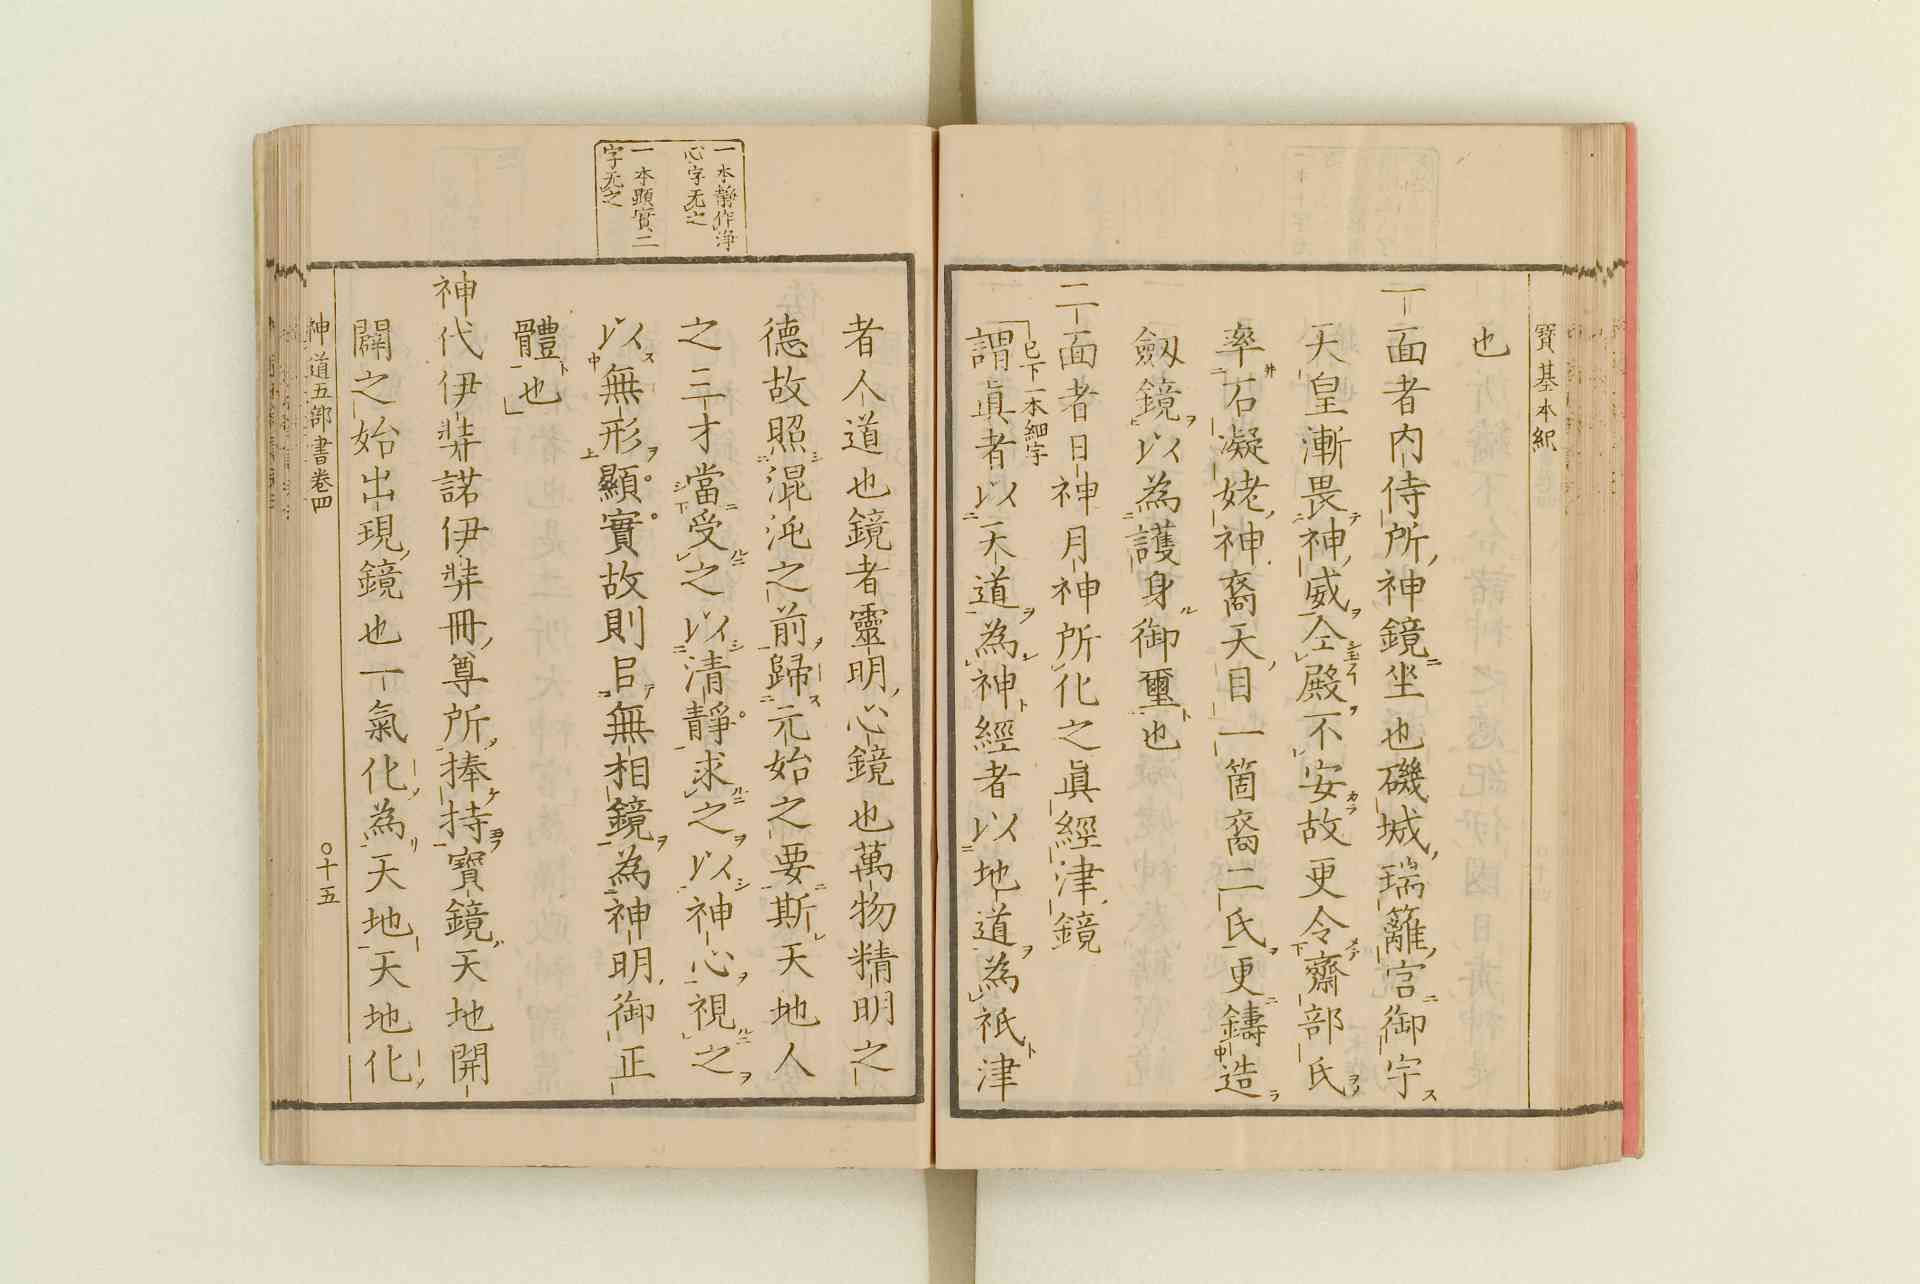 寶基本紀
也
一面者内侍所神鏡坐也磯城瑞籬宮御宇
天皇漸畏神威仝殿不安故更令齋部氏
率石凝姥神裔天目一箇裔二氏更鑄造
劔鏡以為護身御璽也
二面者日神月神所化之眞經津鏡
已下一本細字
謂眞者以天道為神經者以地道為祇津
一本靜作淨
心字无之
一本顯實二
字无之
者人道也鏡者靈明心鏡也萬物精明之
德故照混沌之前歸元始之要斯天地人
之三才當受之以清靜求之以神心視之
以無形顯實故則㠯無相鏡為神明御正
體也
神代伊弉諾伊弉冊尊所捧持寶鏡天地開
闢之始出現鏡也一氣化為天地天地化
神道五部書卷四
○十五